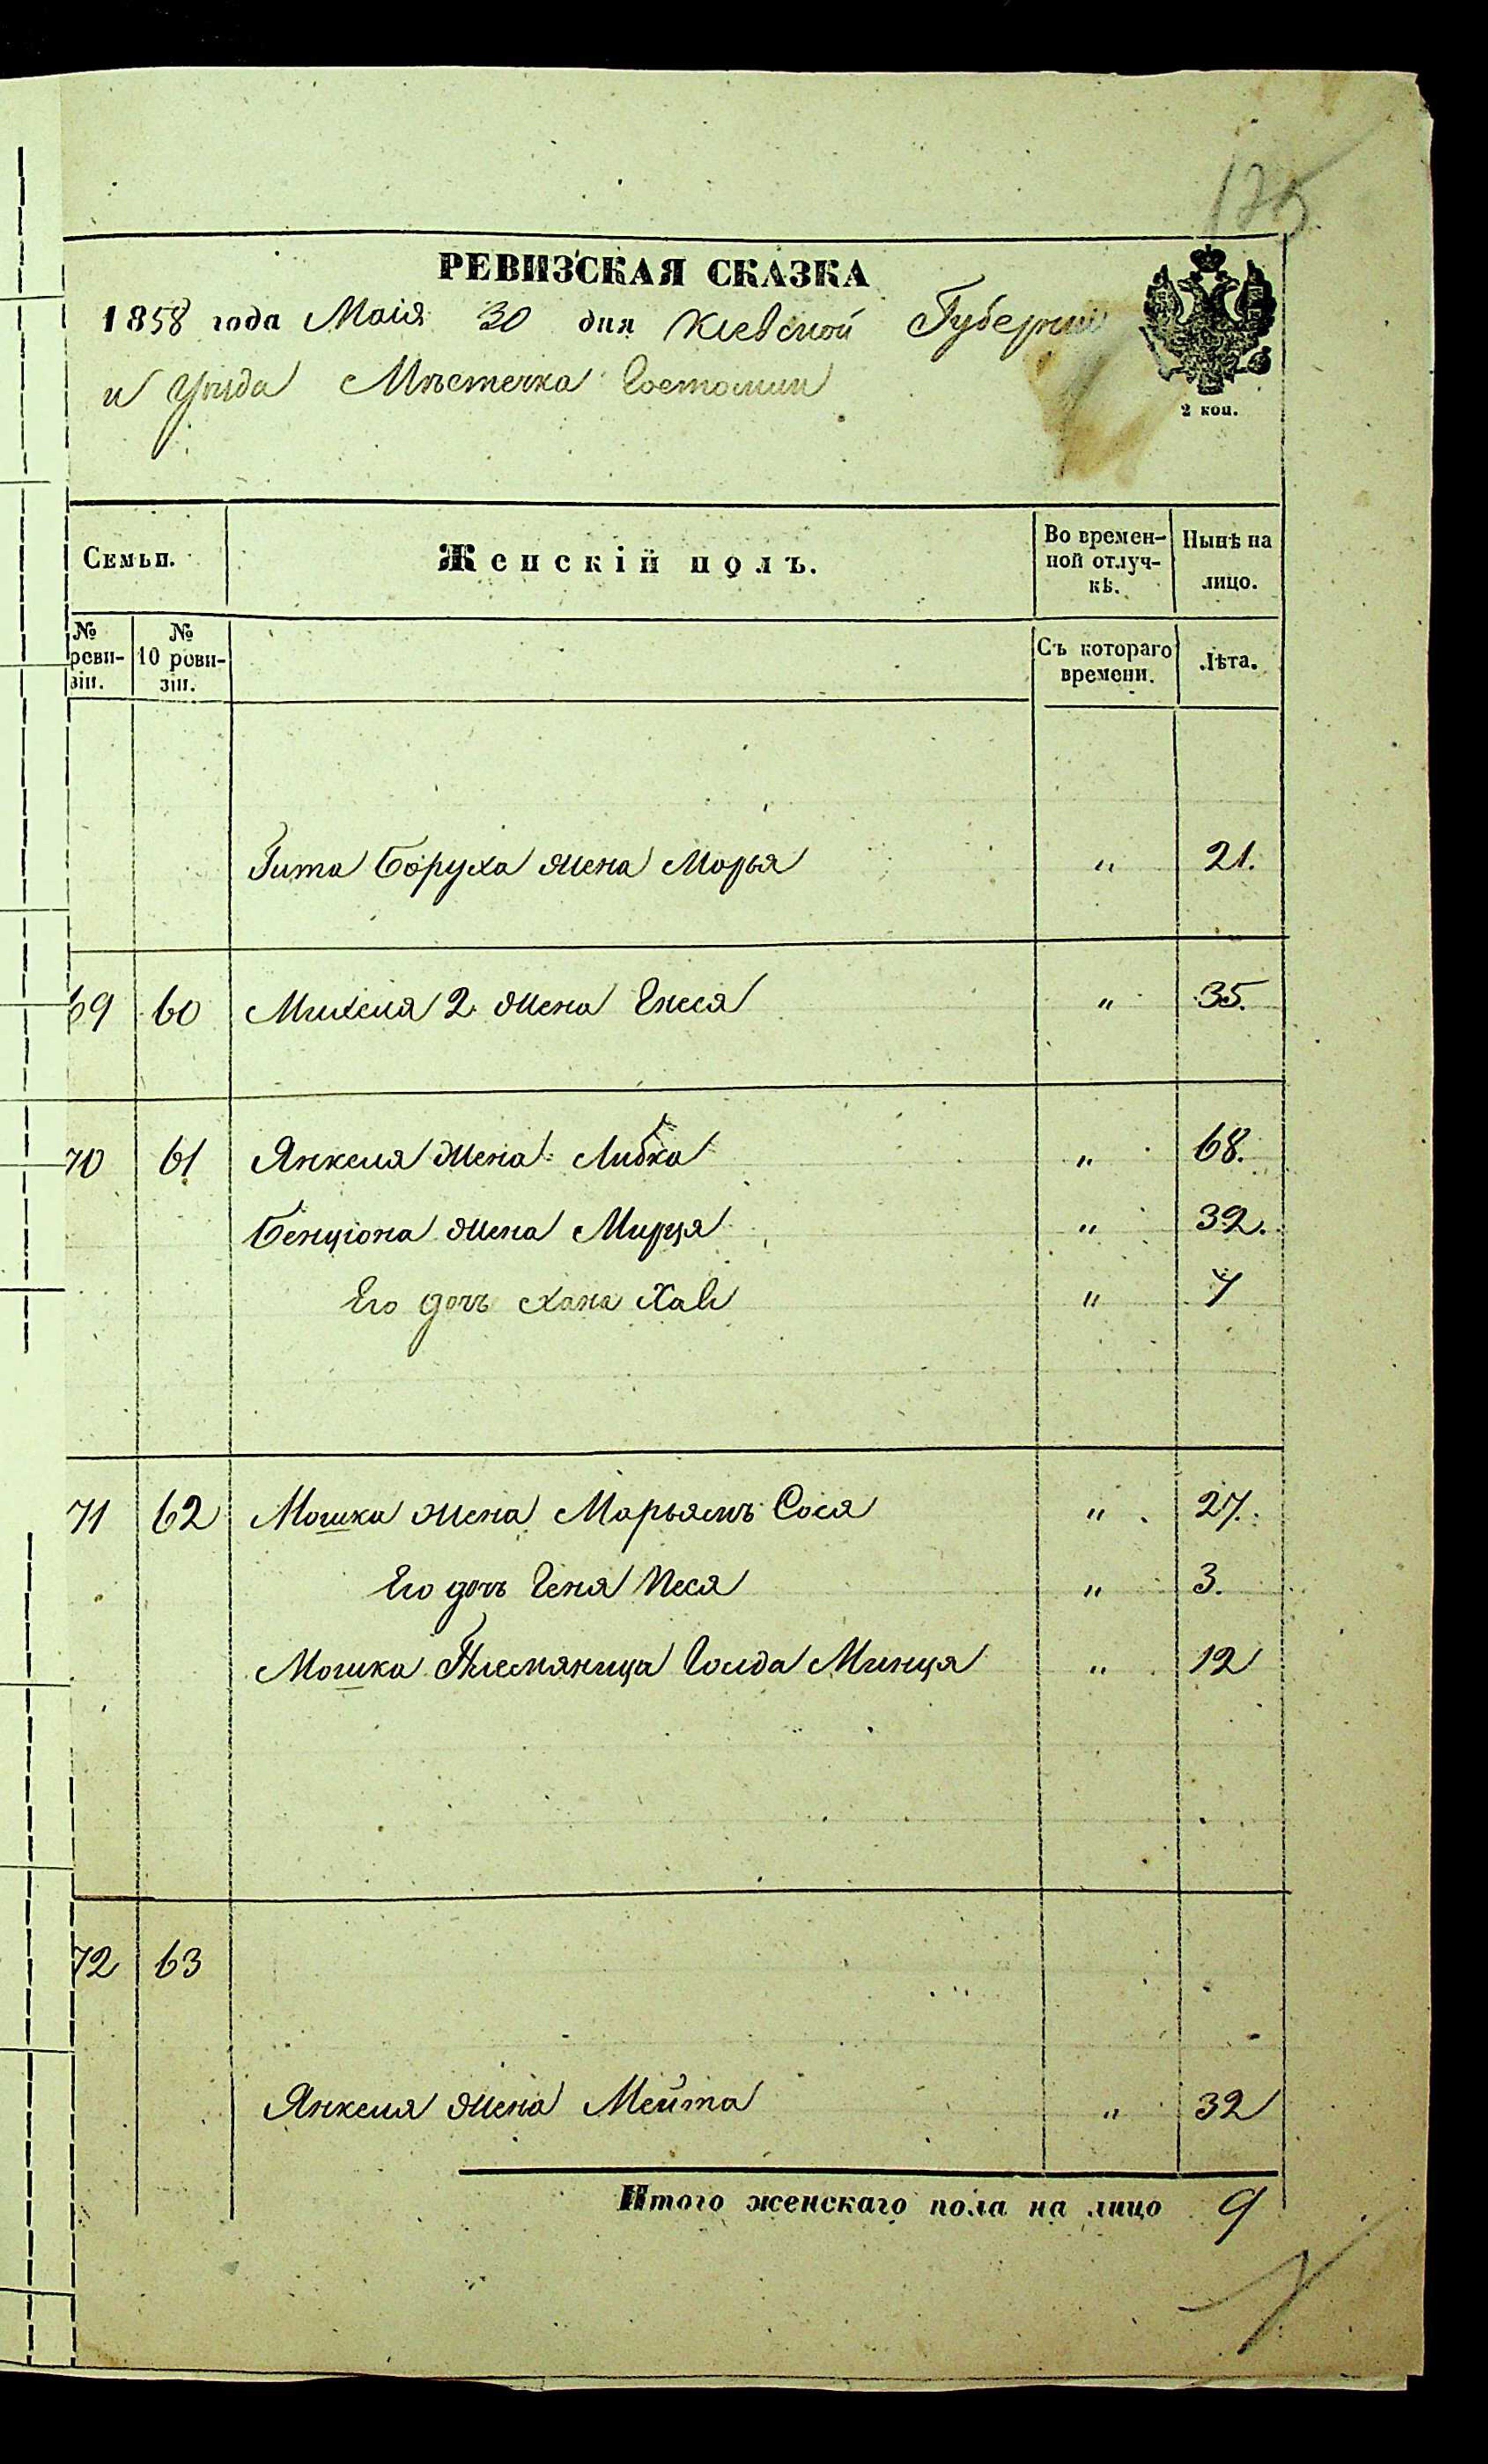 125
РЕВИЗСКАЯ СКАЗКА
1858 года Маія 30 дня Кіевской Губерніи
и Уѣзда Мѣстечка Гостомли
2 коп.
Семьи. Женскій полъ. Во времен- Нынѣ на
ной отлуч- лицо.
кѣ.
№ № Съ котораго Лѣта.
реви- 10 реви- времени.
зіи. зіи.
Гита Боруха жена Марья " 21.
69 60 Михеля 2. жена Енеся " 35.
70 61 Янкеля жена Либка " 68.
Бенціона жена Мирця " 32.
Его дочь Хана Хаве " 7
71 62 Мошка жена Марьямъ Сося " 27.
Его дочь Геня Песя " 3.
Мошка Племяница Голда Минця " 12
72 63
Янкеля жена Мейта " 32
Итого женскаго пола на лицо 9